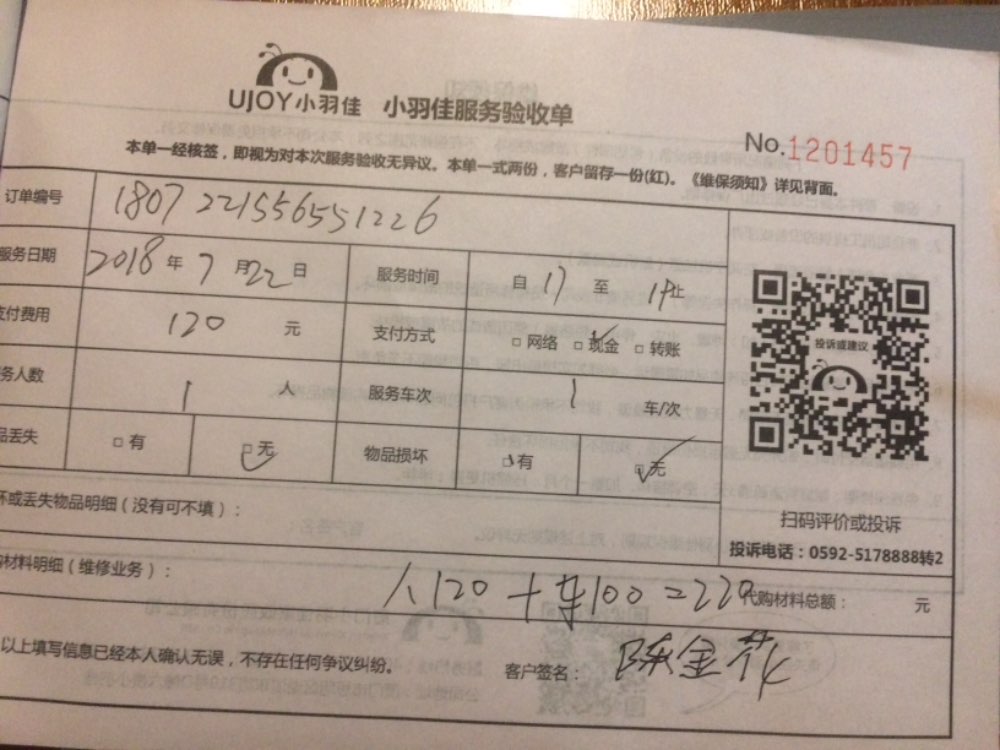 UJOY小羽佳 小羽佳服务验收单
No.1201457
本单一经核签，即视为对本次服务验收无异议。本单一式两份，客户留存一份(红)。《维保须知》详见背面。
订单编号 1807221556551226
服务日期 2018年7月22日 服务时间 自17至19止
支付费用 120元 支付方式 □网络 □现金 □转账
务人数 1人 服务车次 1车/次
品丢失 □有 □无 物品损坏 □有 □无
投诉或建议
扫码评价或投诉
投诉电话：0592-5178888转2
坏或丢失物品明细（没有可不填）：
购材料明细（维修业务）： 人120+车100=220 代购材料总额： 元
以上填写信息已经本人确认无误，不存在任何争议纠纷。 客户签名： 陈金花